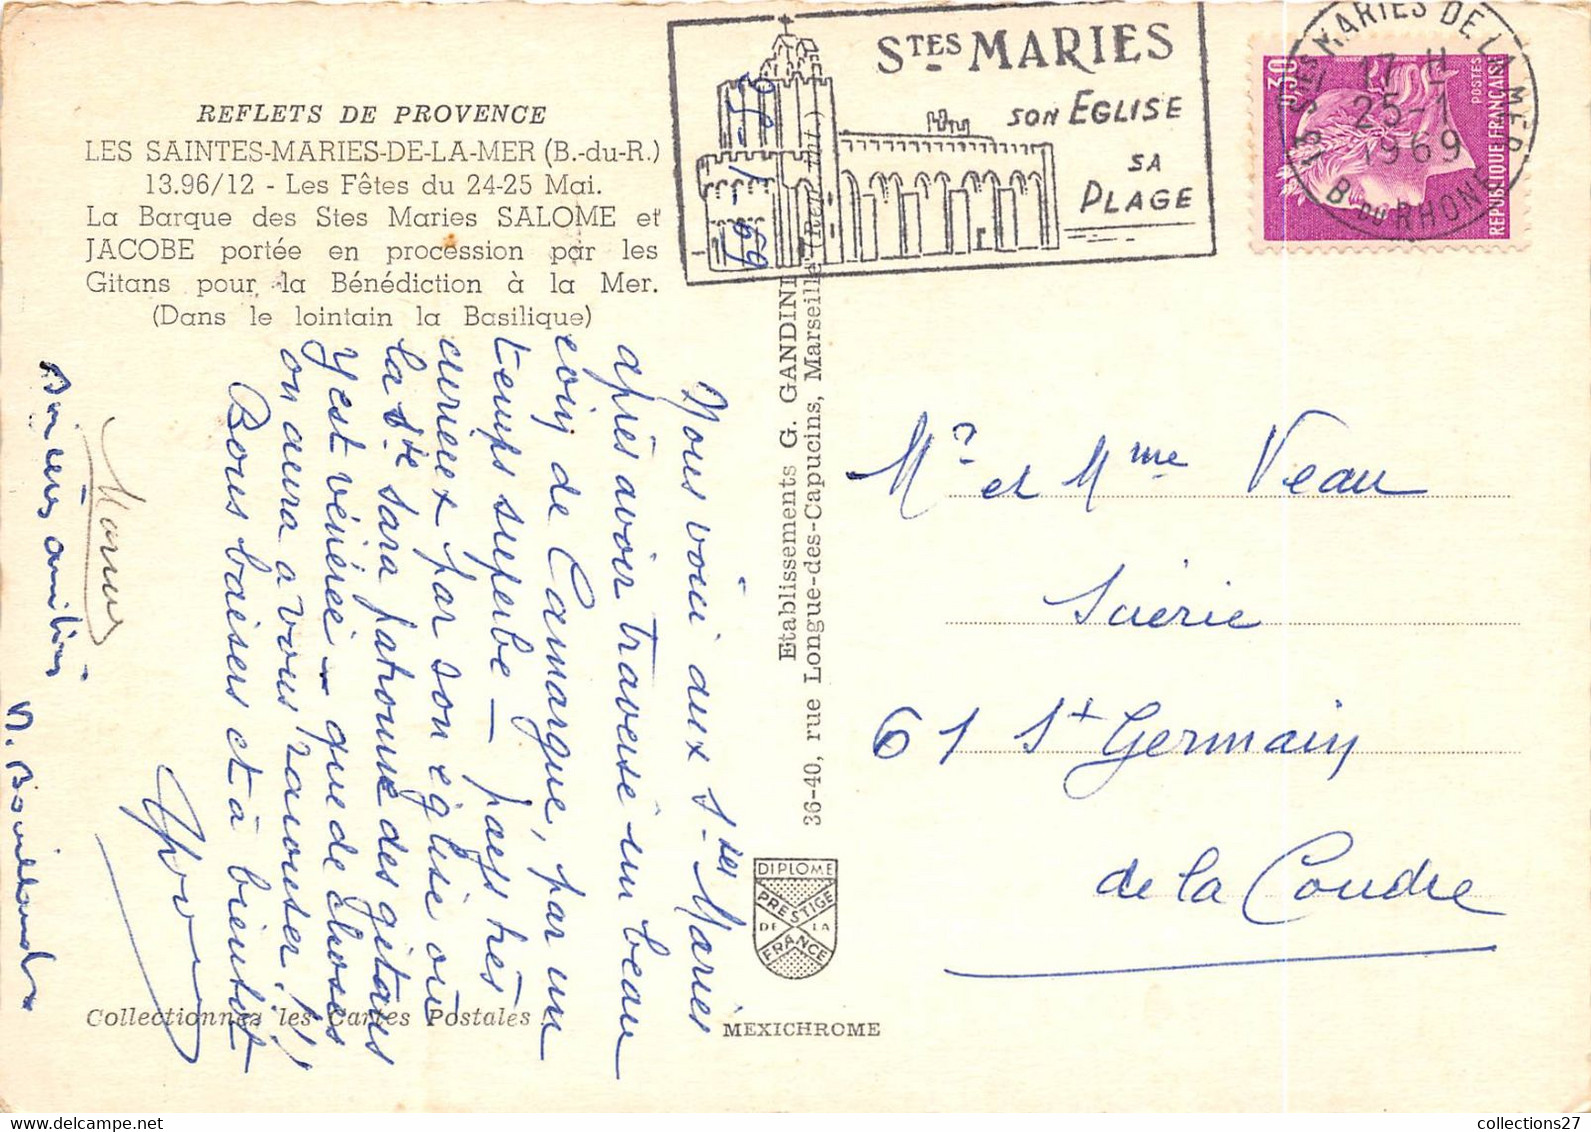 REFLETS DE PROVENCE
LES SAINTES-MARIES-DE-LA-MER (B.-du-R.)
13.96/12 - Les Fêtes du 24-25 Mai.
La Barque des Stes Maries SALOME et
JACOBE portée en procession par les
Gitans pour la Bénédiction à la Mer.
(Dans le lointain la Basilique)
STES MARIES
SON EGLISE
SA
PLAGE
13 STES MARIES DE LA MER
17 H
25-1
1969
B. DU RHONE
0,30
POSTES
REPUBLIQUE FRANÇAISE
25-1-69
Nous voici aux Stes Maries
après avoir traversé un beau
coin de Camargue, par un
temps superbe - pays très
curieux par son église où
la Ste Sara patronne des gitans
y est vénérée - que de choses
on aura à vous raconter !!!
Bons baisers et à bientôt
Yvonne
Marius
Sincères amitiés
Etablissements G. GANDINI
36-40, rue Longue-des-Capucins, Marseille (Rep. int.)
Mr et Mme Veau
Scierie
61 St Germain
de la Coudre
DIPLOME
PRESTIGE
DE LA
FRANCE
Collectionnez les Cartes Postales !
MEXICHROME
collections27